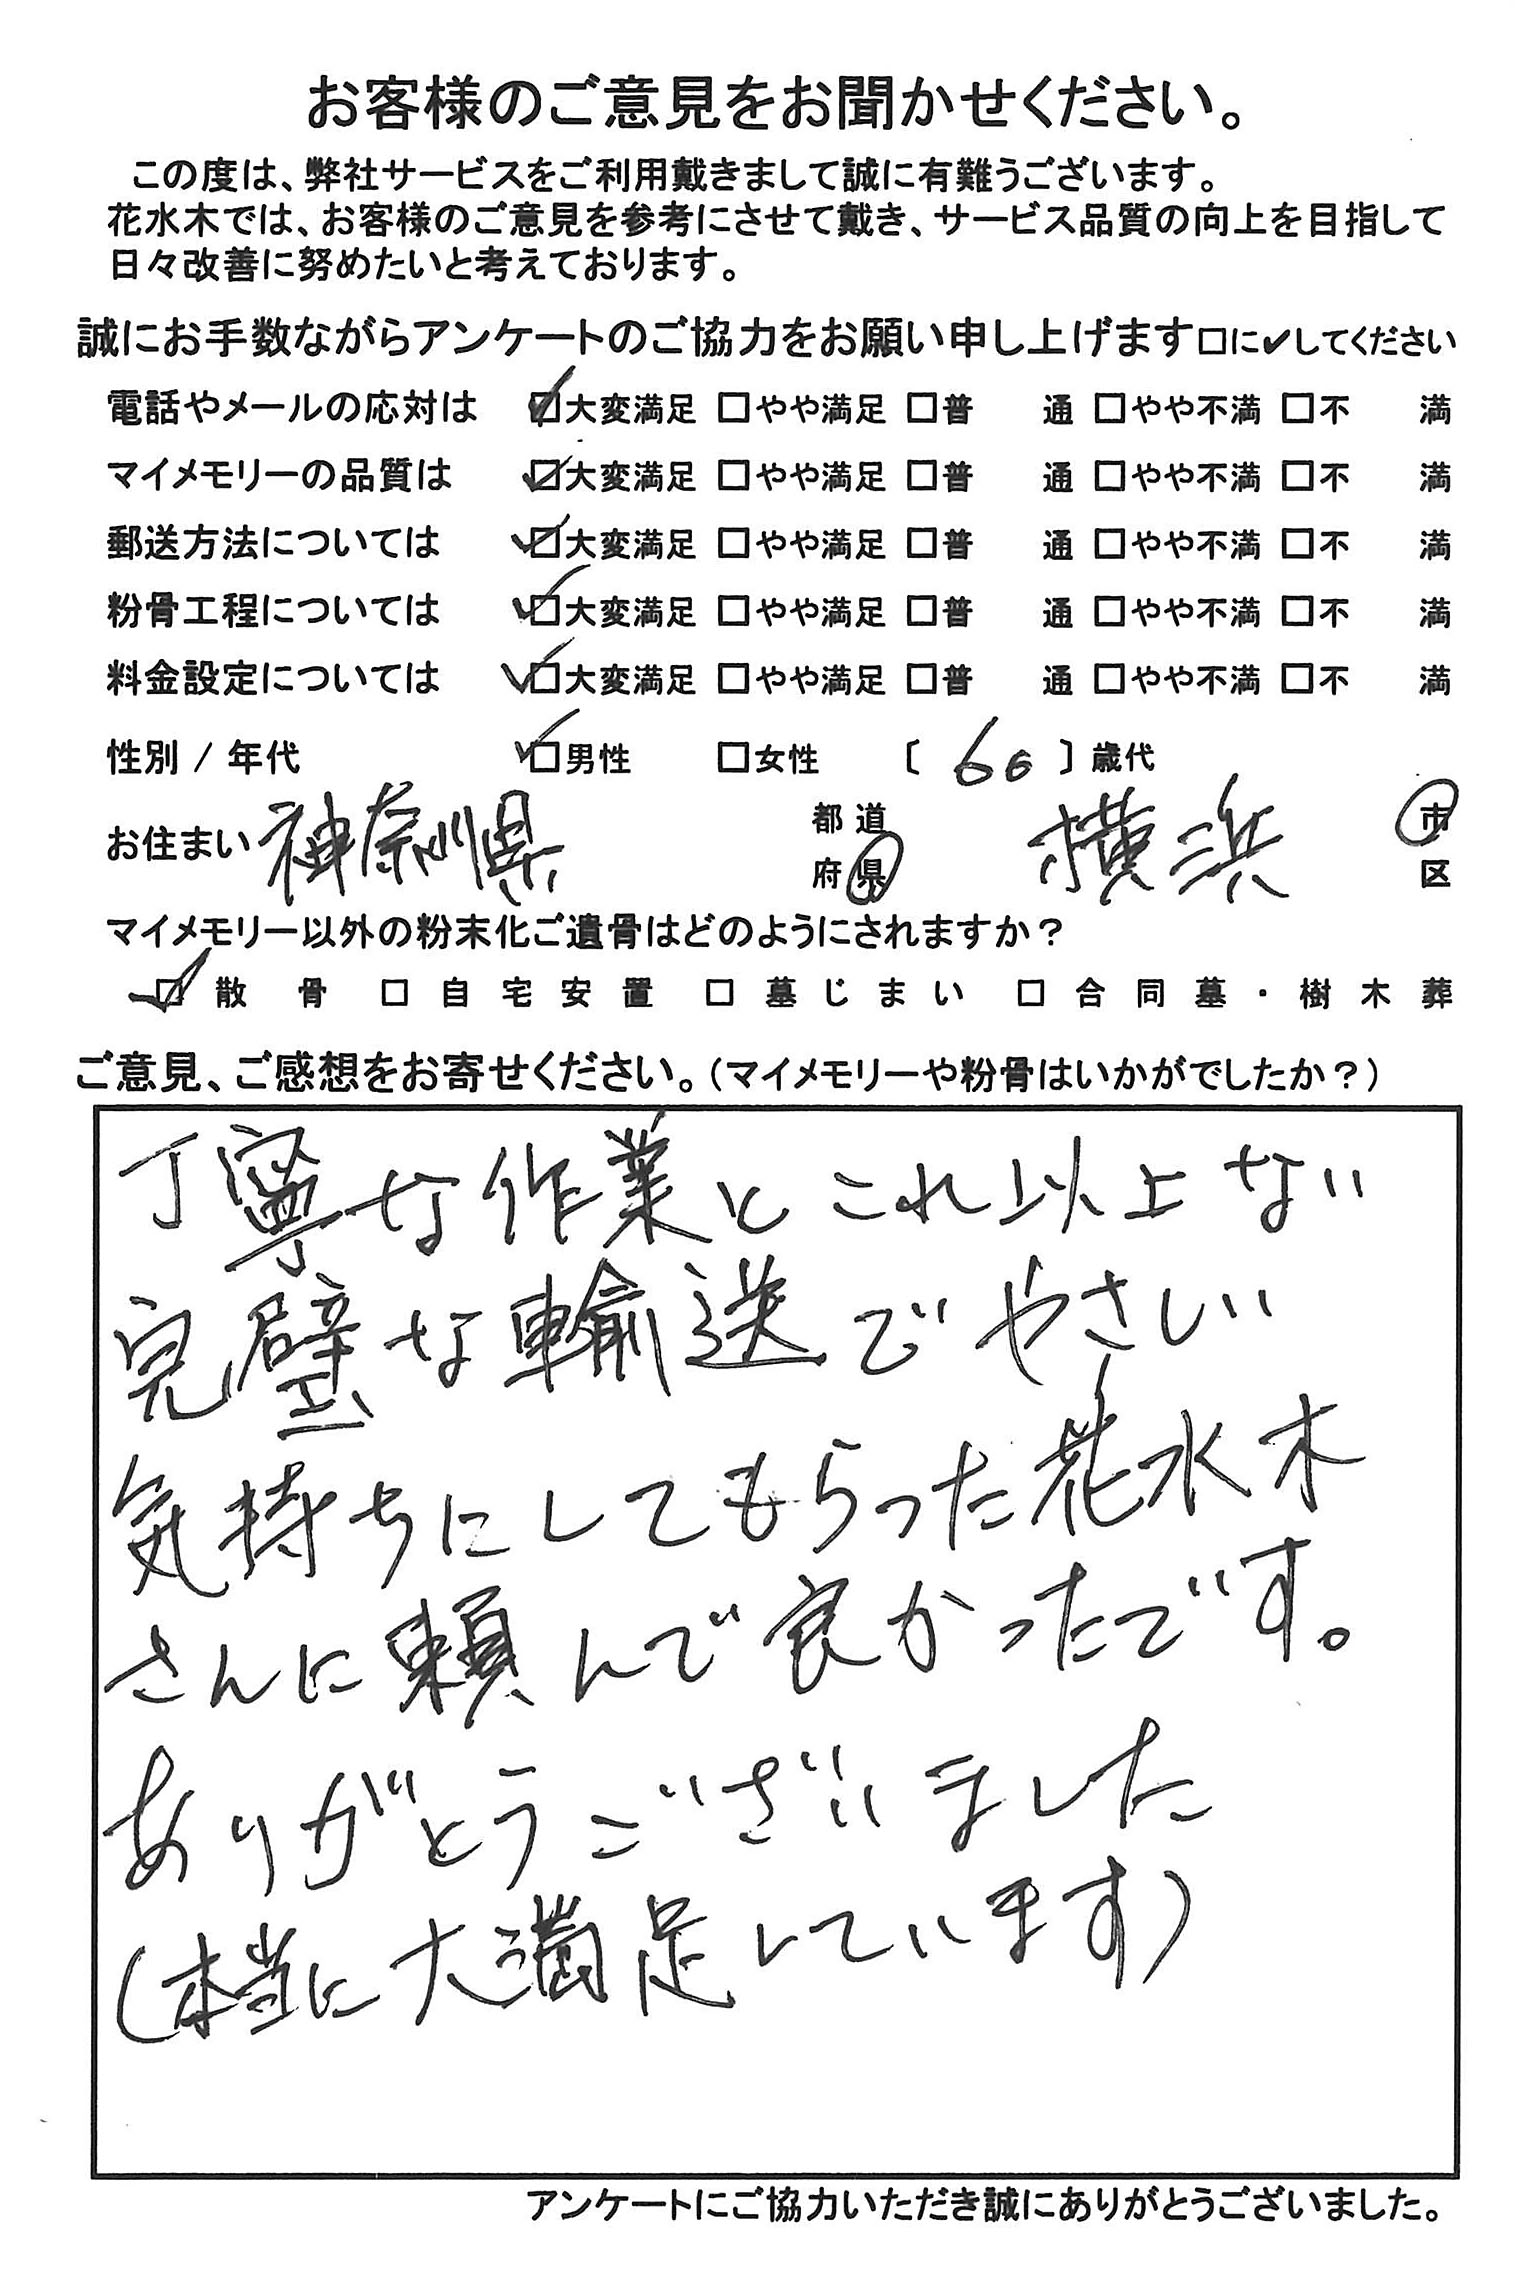 お客様のご意見をお聞かせください。
この度は、弊社サービスをご利用戴きまして誠に有難うございます。
花水木では、お客様のご意見を参考にさせて戴き、サービス品質の向上を目指して
日々改善に努めたいと考えております。
誠にお手数ながらアンケートのご協力をお願い申し上げます□に✔してください
電話やメールの応対は ☑大変満足 □やや満足 □普 通 □やや不満 □不 満
マイメモリーの品質は ☑大変満足 □やや満足 □普 通 □やや不満 □不 満
郵送方法については ☑大変満足 □やや満足 □普 通 □やや不満 □不 満
粉骨工程については ☑大変満足 □やや満足 □普 通 □やや不満 □不 満
料金設定については ☑大変満足 □やや満足 □普 通 □やや不満 □不 満
性別 / 年代 ☑男性 □女性 〔 60 〕歳代
お住まい 神奈川県 都道府県 横浜 市区
マイメモリー以外の粉末化ご遺骨はどのようにされますか？
☑散骨 □自宅安置 □墓じまい □合同墓・樹木葬
ご意見、ご感想をお寄せください。（マイメモリーや粉骨はいかがでしたか？）
丁寧な作業とこれ以上ない
完璧な輸送でやさしい
気持ちにしてもらった花水木
さんに頼んで良かったです。
ありがとうございました
(本当に大満足しています)
アンケートにご協力いただき誠にありがとうございました。